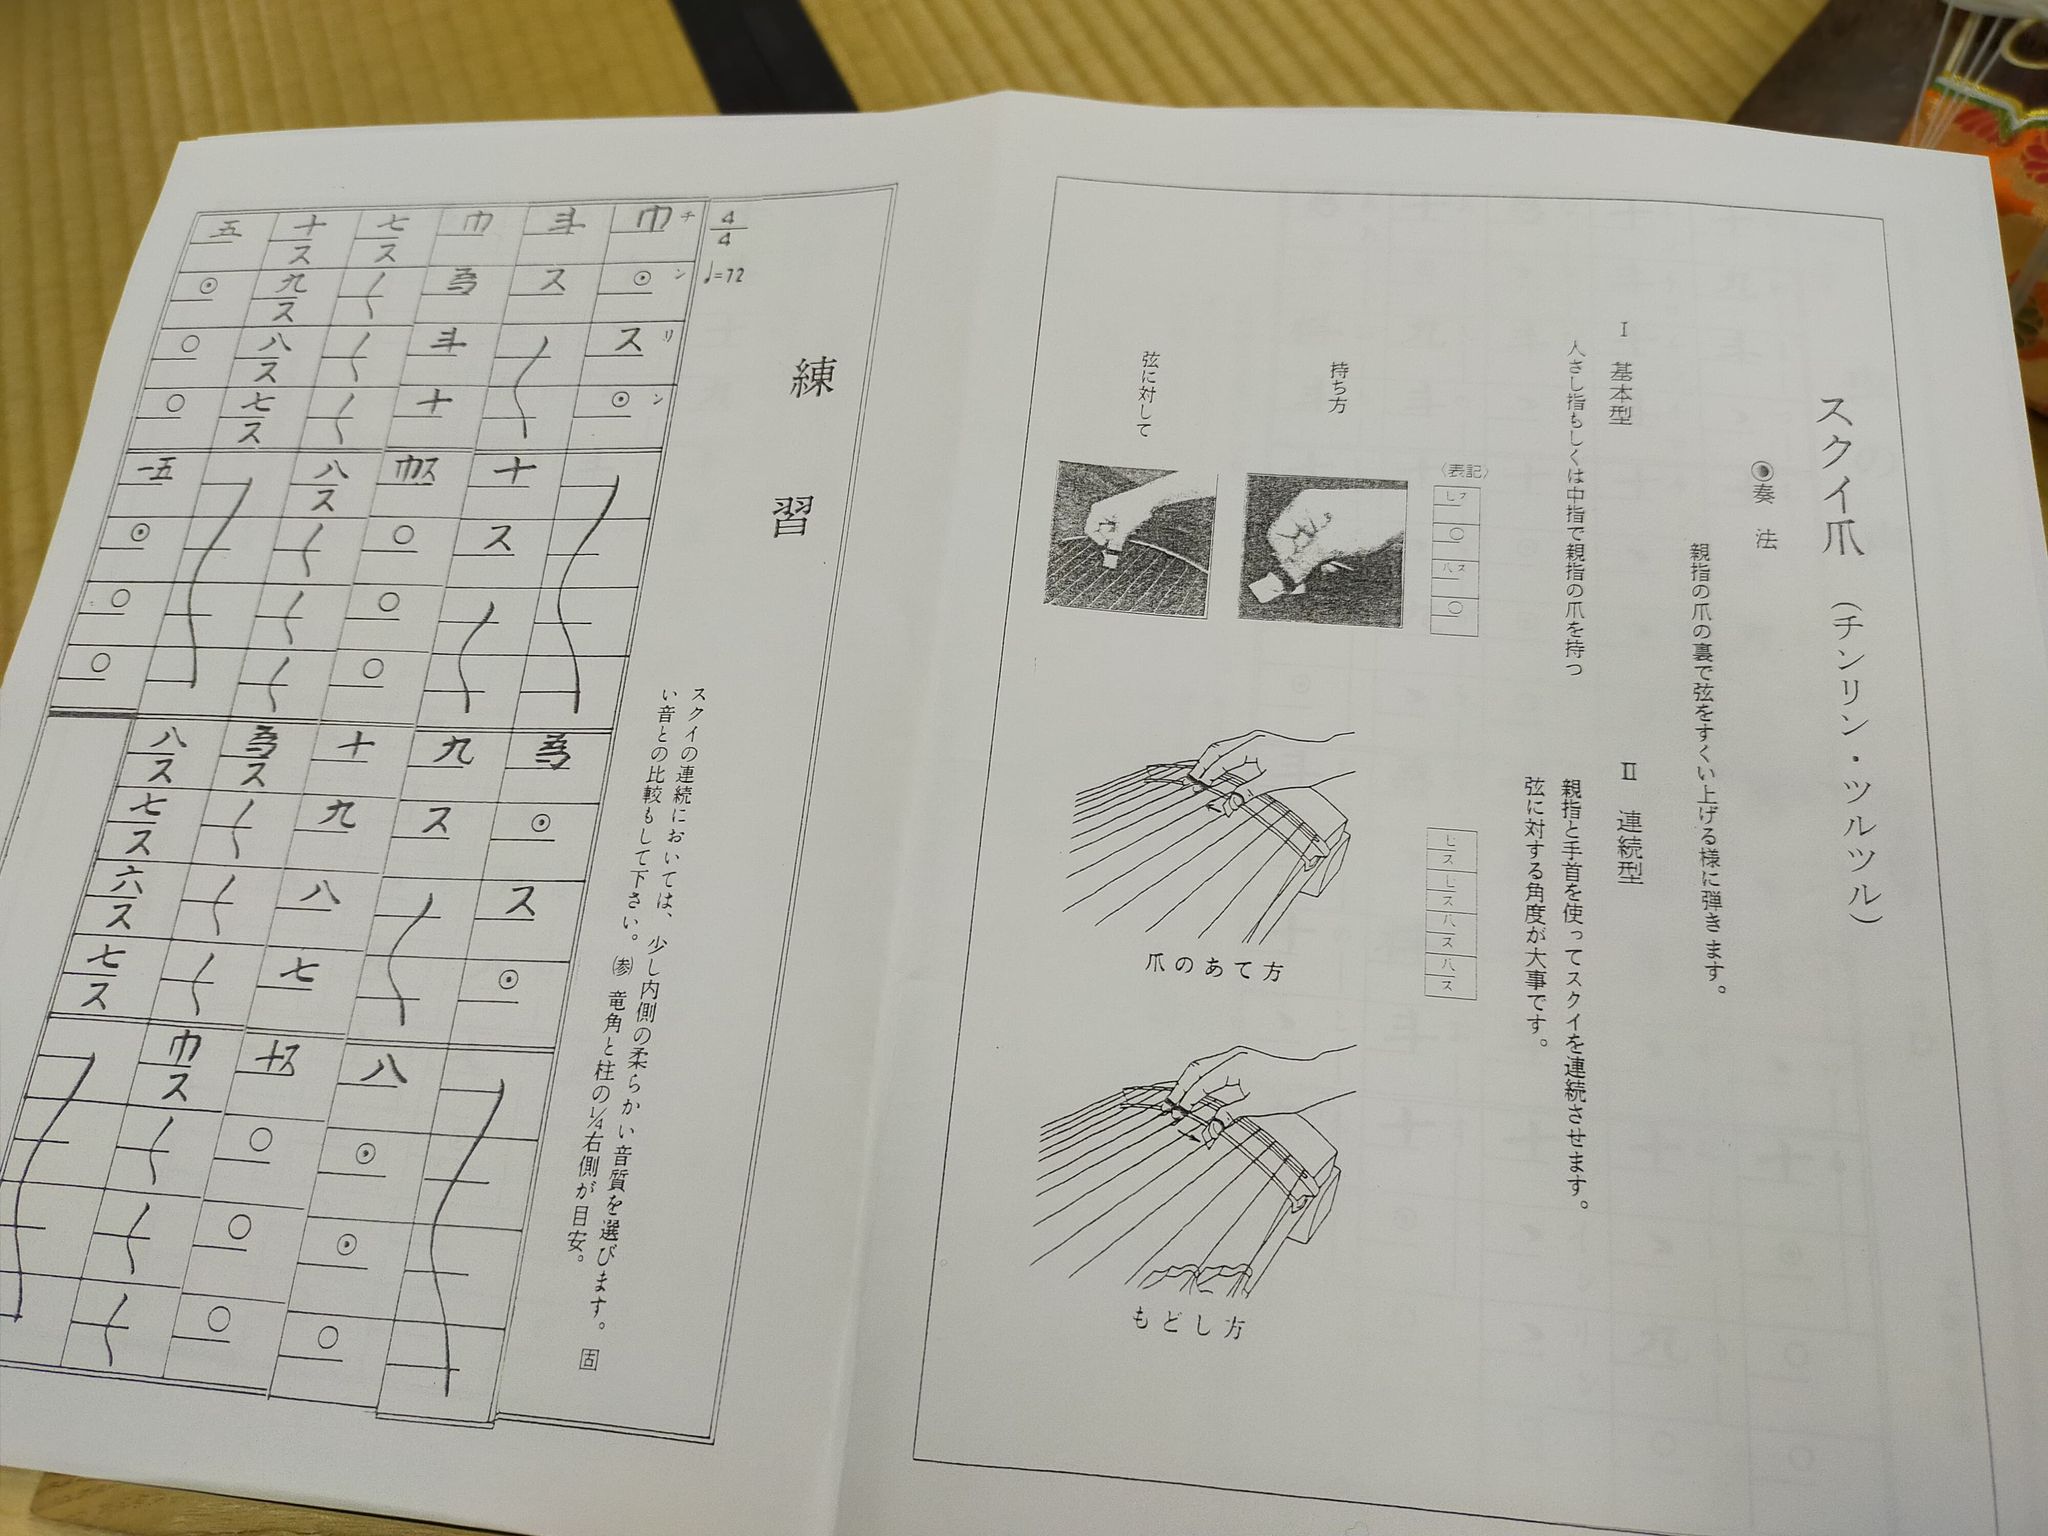 スクイ爪 (チンリン・ツルツル)
◉奏法
親指の爪の裏で弦をすくい上げる様に弾きます。
Ⅰ 基本型
人さし指もしくは中指で親指の爪を持つ
〈表記〉
七ス ○ 八ス ○
持ち方
弦に対して
Ⅱ 連続型
親指と手首を使ってスクイを連続させます。
弦に対する角度が大事です。
七ス 七ス 八ス 八ス
爪のあて方
もどし方
練習
スクイの連続においては、少し内側の柔らかい音質を選びます。固
い音との比較もして下さい。(参) 竜角と柱の1/4右側が目安。
4/4 ♩=72
チンリン
巾 ⊙ ス ⊙ 為 ⊙ ス ⊙
斗 ス 十 ス 九 ス 八 ⊙ ⊙ ○
巾 為 斗 十 巾ス ○ ○ ○ 十 九 八 七 十ス ○ ○ ○
七ス 〱 〱 〱 八ス 〱 〱 〱 為ス 〱 〱 〱 巾ス 〱 〱 〱
十ス 九ス 八ス 七ス 八ス 七ス 六ス 七ス
五 ⊙ ○ ○ 一五 ⊙ ○ ○